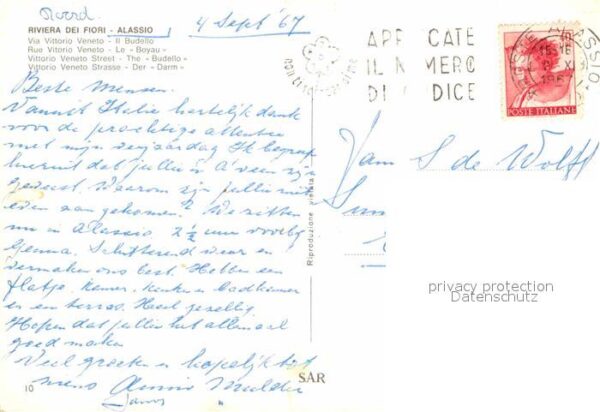 Noord.
4 Sept '67
RIVIERA DEI FIORI - ALASSIO
Via Vittorio Veneto - Il Budello
Rue Vittorio Veneto - Le « Boyau »
Vittorio Veneto Street - The « Budello »
Vittorio Veneto Strasse - Der « Darm »
Beste mensen.
Vanuit Italie hartelijk dank
voor de prachtige attentie
met mijn verjaardag Ik begreep
hieruit dat jullie in A'veen zijn
geweest. Waarom zijn jullie niet
even aangekomen? We zitten
nu in Alassio 2½ uur voorbij
Genua. Schitterend weer en
vermaken ons best. Hebben een
flatje, kamer, keuken en badkamer
en een terras. Heel gezellig
Hopen dat jullie het allemaal
goed maken
Veel groeten en hopelijk tot
Mulder
10
SAR
Riproduzione vietata
IL NUMERO
DI CODICE
POSTE ITALIANE
Fam S de Wolff
privacy protection
Datenschutz